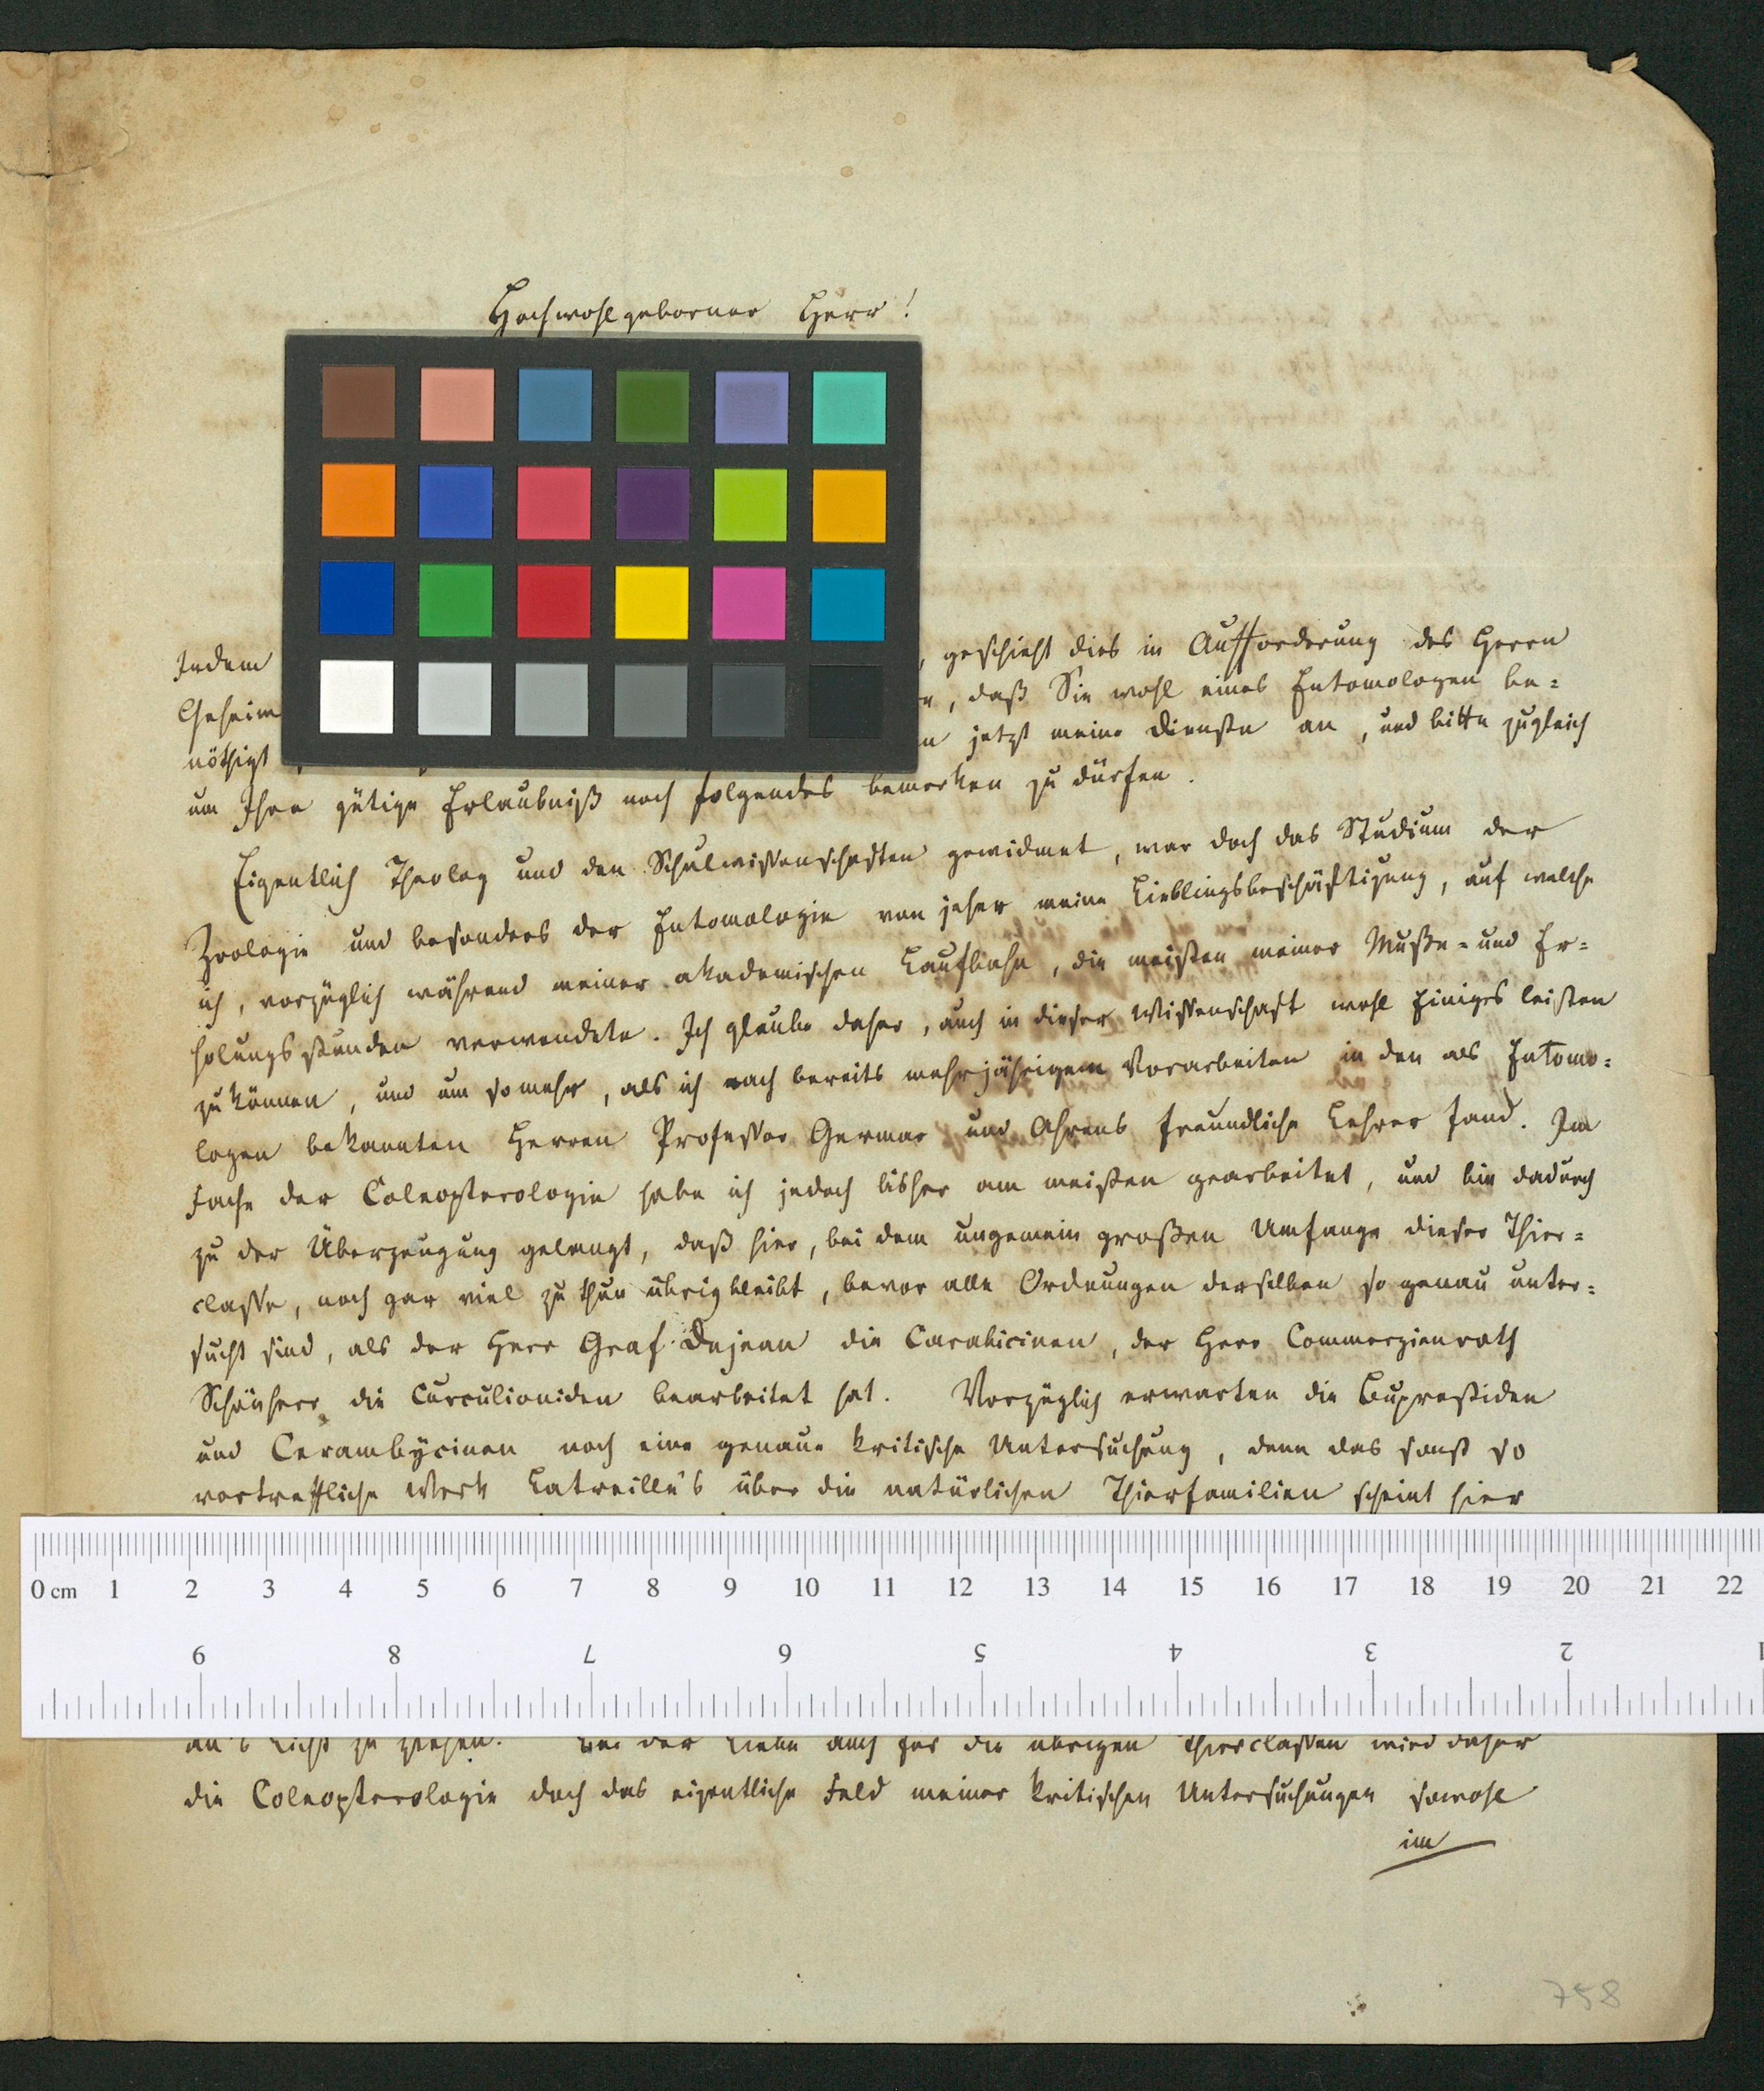 Hochwohlgeborner Herr!
Indem , geschieht dies in Aufforderung des Herrn
Geheim , daß Sie wohl eines Entomologen be=
nöthigt jetzt meine Dienste an, und bitte zugleich
um Ihre gütige Erlaubniß noch folgendes bemerken zu dürfen.
Eigentlich Theolog und den Schulwissenschaften gewidmet, war doch das Studium der
Zoologie und besonders der Entomologie von jeher meine Lieblingsbeschäftigung, auf welche
ich, vorzüglich während meiner akademischen Laufbahn, die meisten meiner Muße= und Er=
holungsstunden verwendete. Ich glaube daher, auch in dieser Wissenschaft wohl Einiges leisten
zu können, und um so mehr, als ich nach bereits mehrjährigem Vorarbeiten in den als Entomo=
logen bekannten Herren Professor Germar und Ahrens freundliche Lehrer fand. Im
Fache der Coleopterologie habe ich jedoch bisher am meisten gearbeitet, und bin dadurch
zu der Überzeugung gelangt, daß hier, bei dem ungemein großen Umfange dieser Thier=
classe, noch gar viel zu thun übrig bleibt, bevor alle Ordnungen derselben so genau unter=
sucht sind, als der Herr Graf Dejean die Carabicinen, der Herr Commerzienrath
Schönherr die Curculioniden bearbeitet hat. Vorzüglich erwarten die Buprestiden
und Cerambycinen noch eine genaue kritische Untersuchung, denn das sonst so
vortreffliche Werk Latreille's über die natürlichen Thierfamilien scheint hier
0 cm 1 2 3 4 5 6 7 8 9 10 11 12 13 14 15 16 17 18 19 20 21 22
9 8 7 6 5 4 3 2 1
an's Licht zu ziehen. Bei der Liebe auch für die übrigen Thierclassen wird daher
die Coleopterologie doch das eigentliche Feld meiner kritischen Untersuchungen sowohl
im
758